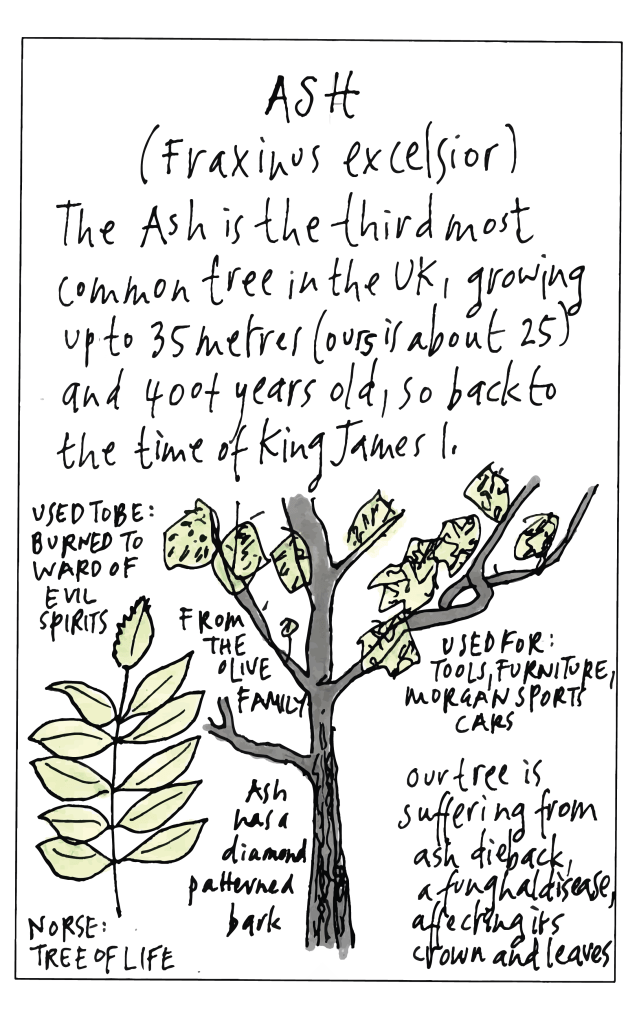 ASH
(Fraxinus excelsior)
The Ash is the third most
common tree in the UK, growing
up to 35 metres (ours is about 25)
and 400+ years old, so back to
the time of King James I.
USED TO BE:
BURNED TO
WARD OF
EVIL
SPIRITS
FROM
THE
OLIVE
FAMILY
USED FOR:
TOOLS, FURNITURE,
MORGAN SPORTS
CARS
Ash
has a
diamond
patterned
bark
our tree is
suffering from
ash dieback,
a funghal disease,
affecting its
crown and leaves
NORSE:
TREE OF LIFE